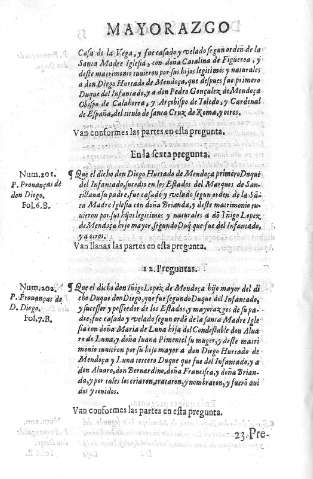 MAYORAZGO
Casa de la Vega, y fue casado y velado segun orden de la
Santa Madre Iglesia, con doña Catalina de Figueroa, y
deste matrimonio tuuieron por sus hijos legitimos y naturales
a don Diego Hurtado de Mendoza, que despues fue primero
Duque del Infantado, y a don Pedro Gonçalez de Mendoça
Obispo de Calahorra, y Arçobispo de Toledo, y Cardenal
de España, del titulo de santa Cruz de Roma, y otros.
Van conformes las partes en esta pregunta.
En la sexta pregunta.
Num. 201.
P. Prouanças de
don Diego.
Fol. 6. B.
¶ Que el dicho don Diego Hurtado de Mendoza primero Duque
del Infantado, sucedio en los Estados del Marques de San-
tillana su padre, fue casado y velado segun orden de la Sã
ta Madre Iglesia con doña Brianda, y deste matrimonio tu-
uieron por sus hijos legitimos y naturales a dõ Iñigo Lopez
de Mendoça hijo mayor, segundo Duq̃ que fue del Infantado,
y a otros.
Van llanas las partes en esta pregunta.
12. Preguntas.
Num. 202.
P. Prouanças de
D. Diego.
Fol. 7. B.
¶ Que el dicho don Iñigo Lopez de Mendoça hijo mayor del di
cho Duque don Diego, que fue segundo Duque del Infantado,
y sucessor y posseedor de los Estados, y mayorazgos de su pa-
dre, fue casado y velado segun orden de la santa Madre Igle
sia con doña Maria de Luna hija del Condestable don Alua
ro de Luna, y doña Iuana Pimentel su muger, y deste matri
monio tuuieron por su hijo mayor a don Diego Hurtado de
Mendoça y Luna tercero Duque que fue del Infantado, y a
don Aluaro, don Bernardino, doña Francisca, y doña Brian-
da, y por tales los criaron, trataron, y nombraron, y fuerõ aui
dos y tenidos.
Van conformes las partes en esta pregunta.
23. Pre-